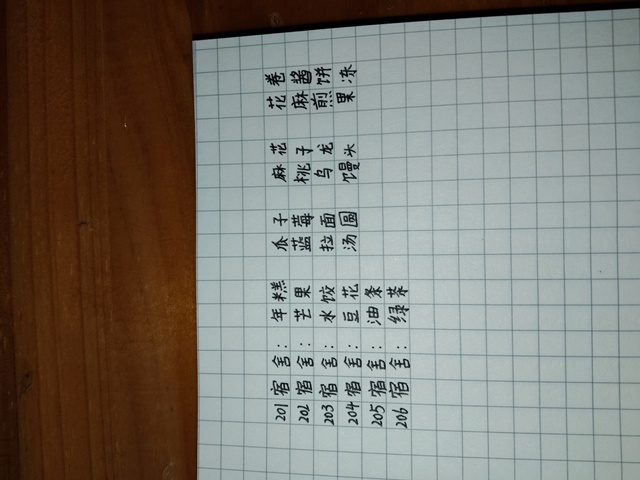 201宿舍：年糕 瓜子 麻花 花卷
202宿舍：芒果 蓝莓 桃子 麻酱
203宿舍：水饺 拉面 乌龙 煎饼
204宿舍：豆花 汤圆 馒头 果冻
205宿舍：油条
206宿舍：绿茶